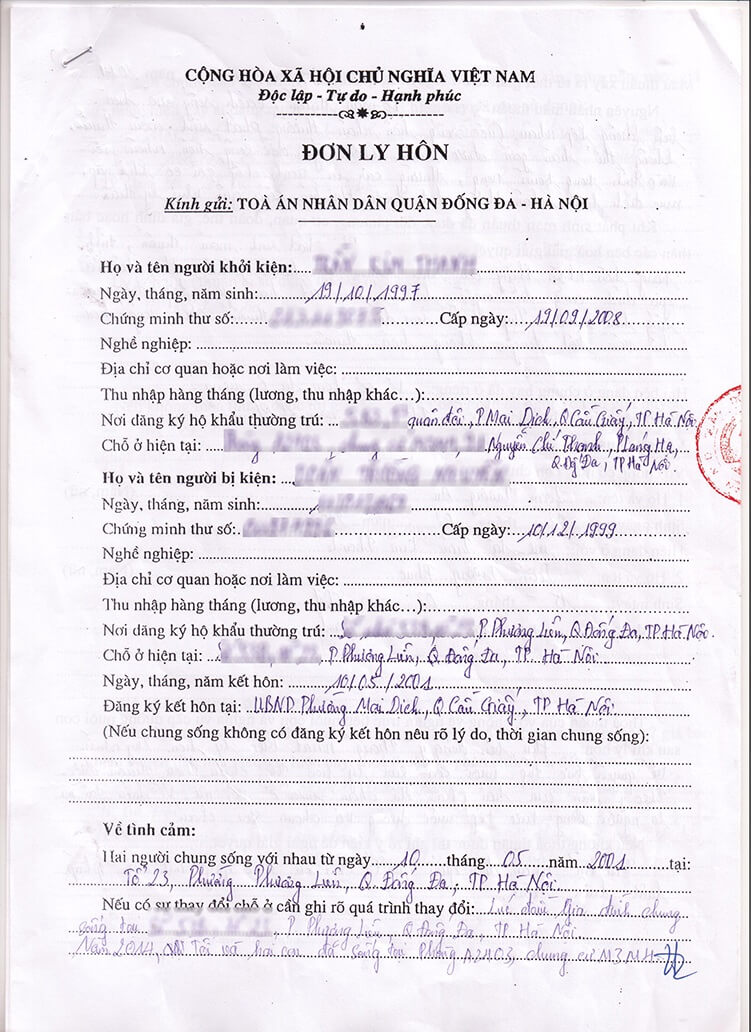 CỘNG HÒA XÃ HỘI CHỦ NGHĨA VIỆT NAM
Độc lập - Tự do - Hạnh phúc
ĐƠN LY HÔN
Kính gửi: TOÀ ÁN NHÂN DÂN QUẬN ĐỐNG ĐA - HÀ NỘI
Họ và tên người khởi kiện:
Ngày, tháng, năm sinh: 19/10/1997
Chứng minh thư số: Cấp ngày: 19/09/2008
Nghề nghiệp:
Địa chỉ cơ quan hoặc nơi làm việc:
Thu nhập hàng tháng (lương, thu nhập khác...):
Nơi đăng ký hộ khẩu thường trú: quân đội, P. Mai Dịch, Q. Cầu Giấy, TP Hà Nội
Chỗ ở hiện tại: Nguyễn Chí Thanh, P. Láng Hạ,
Q. Đống Đa, TP Hà Nội.
Họ và tên người bị kiện:
Ngày, tháng, năm sinh:
Chứng minh thư số: Cấp ngày: 10/12/1999
Nghề nghiệp:
Địa chỉ cơ quan hoặc nơi làm việc:
Thu nhập hàng tháng (lương, thu nhập khác...):
Nơi đăng ký hộ khẩu thường trú: P. Phương Liên, Q. Đống Đa, TP. Hà Nội.
Chỗ ở hiện tại: P. Phương Liên, Q. Đống Đa, TP Hà Nội.
Ngày, tháng, năm kết hôn: 10/05/2001
Đăng ký kết hôn tại: UBND Phường Mai Dịch, Q. Cầu Giấy, TP Hà Nội
(Nếu chung sống không có đăng ký kết hôn nêu rõ lý do, thời gian chung sống):
Về tình cảm:
Hai người chung sống với nhau từ ngày 10 tháng 05 năm 2001 tại:
Tổ 23, Phường Phương Liên, Q. Đống Đa, TP Hà Nội.
Nếu có sự thay đổi chỗ ở cần ghi rõ quá trình thay đổi: Lúc đầu gia đình chung
sống tại P. Phương Liên, Q. Đống Đa, TP Hà Nội
Năm 2014, tôi và hai con đã sống tại Phòng A2403, chung cư M3, M4